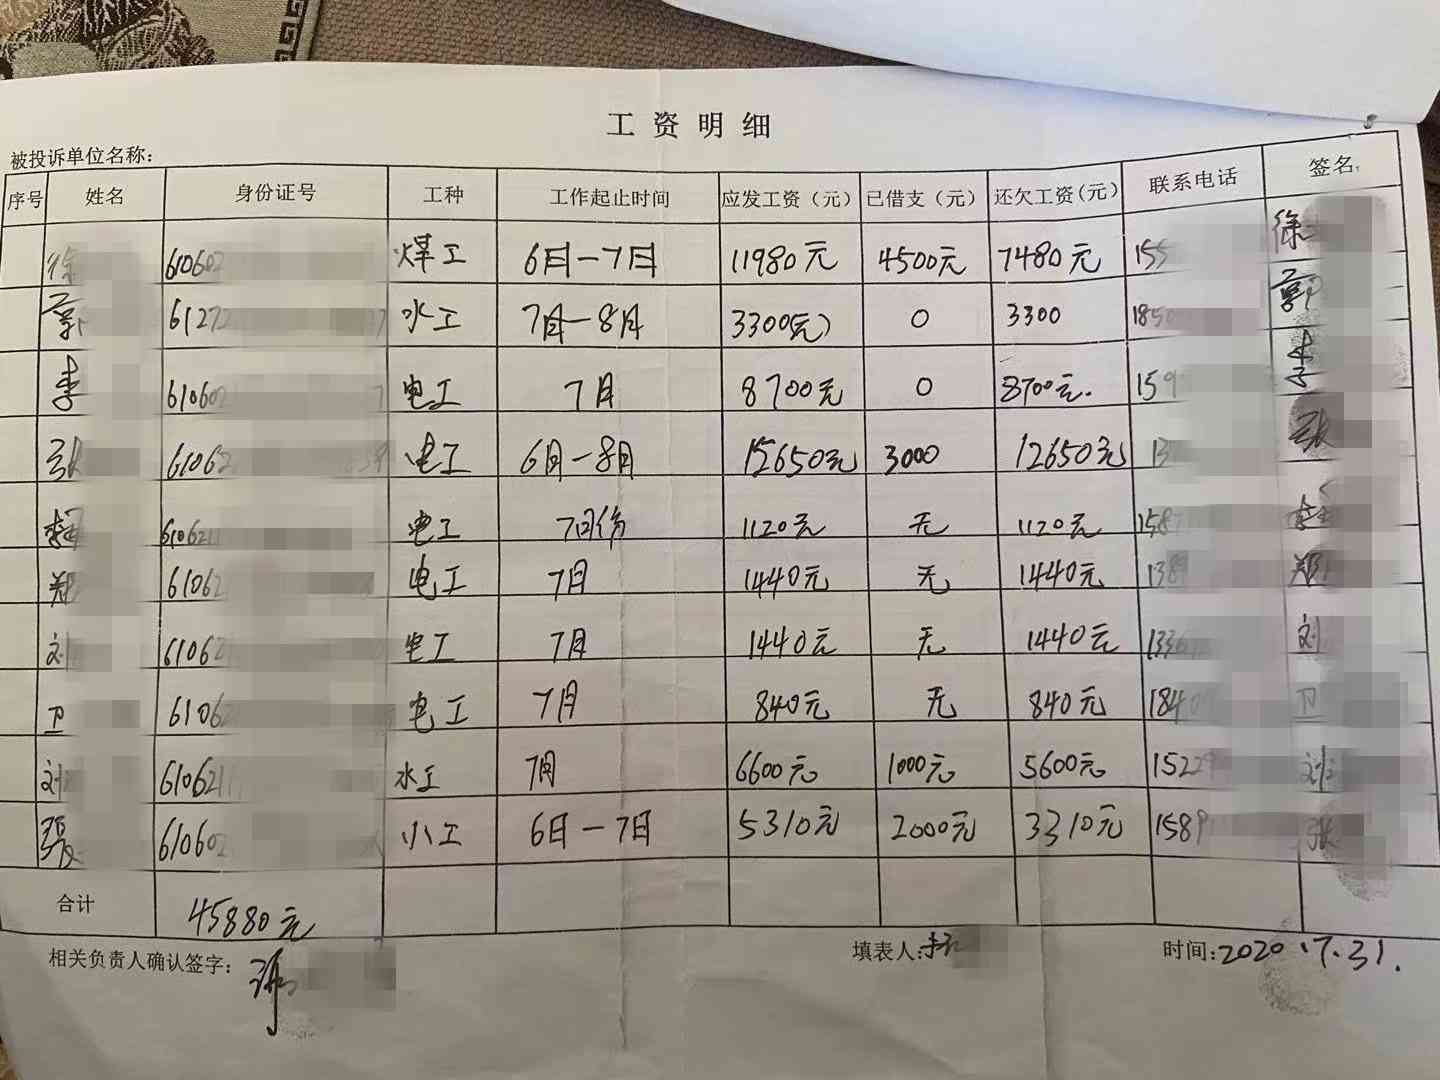 工资明细
被投诉单位名称：
序号 姓名 身份证号 工种 工作起止时间 应发工资（元） 已借支（元） 还欠工资(元) 联系电话 签名
徐 610602 煤工 6月-7月 11980元 4500元 7480元 155 徐
郭 61272 水工 7月-8月 3300(元) 0 3300 1850 郭
李 610602 电工 7月 8700元 0 8700元. 159 李
张 61062 电工 6月-8月 15650元 3000 12650元 13 张
610621 电工 7月份 1120元 无 1120元 1587
郑 61062 电工 7月 1440元 无 1440元 1389 郑
刘 61062 电工 7月 1440元 无 1440元 1336 刘
卫 61062 电工 7月 840元 无 840元 1840 卫
刘 610621 水工 7月 6600元 1000元 5600元 15229 刘
张 610602 小工 6月-7月 5310元 2000元 3310元 1589 张
合计 45880元
相关负责人确认签字： 填表人: 时间:2020.7.31.